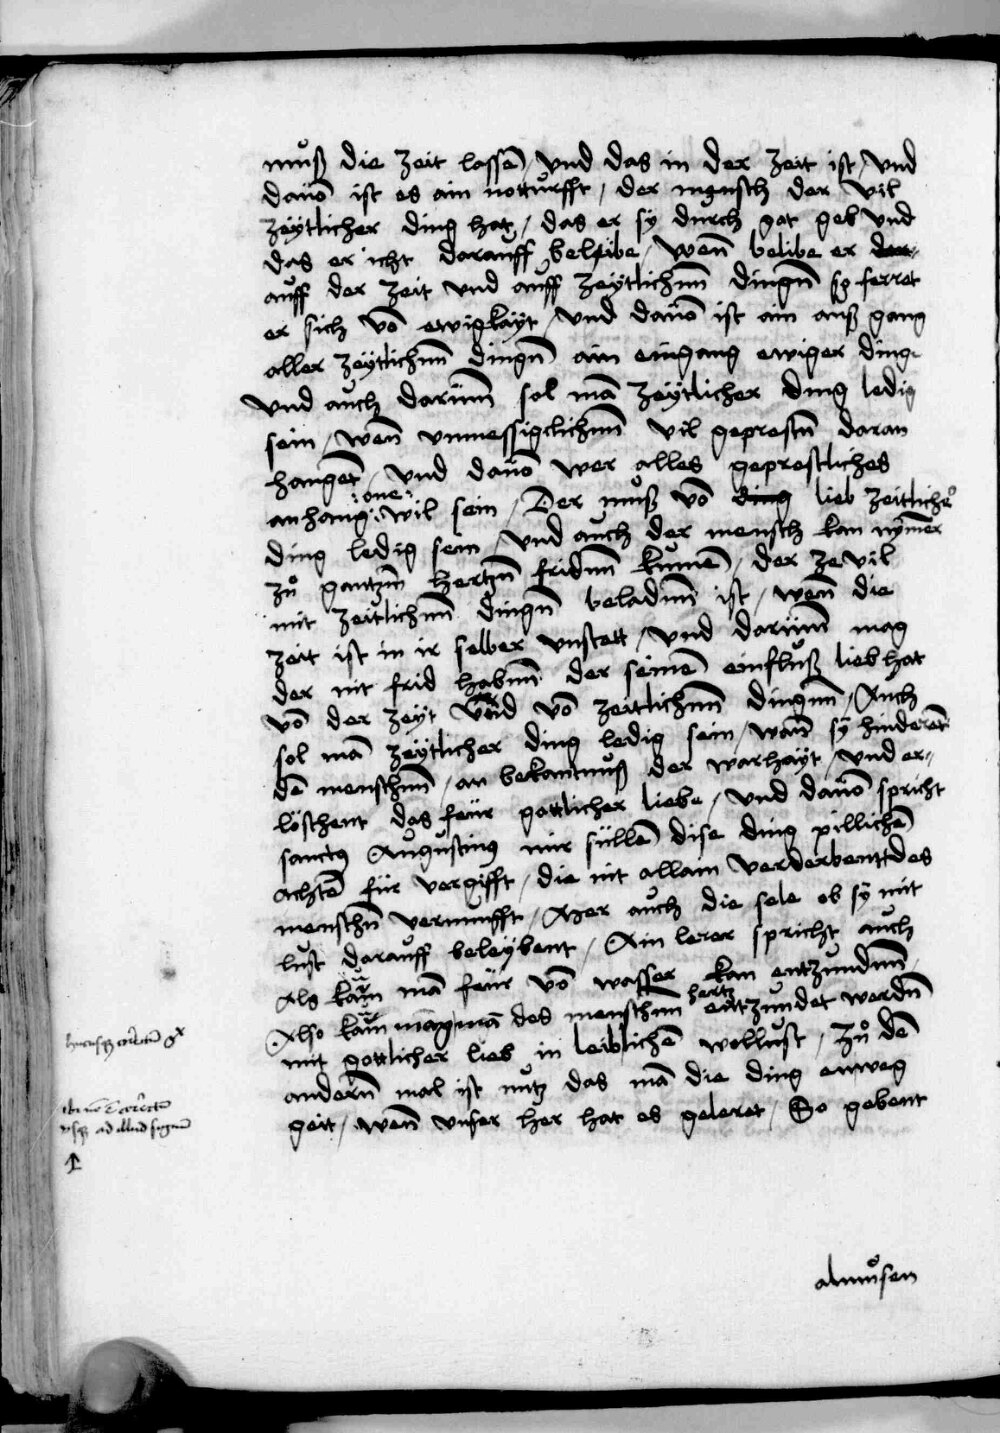 muß die zeit lassē / vnd das in der zeit ist / vnd
dauō ist es ain notturfft / der mensch der vil
zeÿtlicher ding hat / das er sÿ durch got geb vnd
das er icht darauff beleibe / wen̄ belibe er dar-
auff der zeit vnd auff zeÿtlichnn̄ dingn̄ so ferret
er sich vō ewigkaÿt / vnd dauō ist ain auß gang
aller zeÿtlichnn̄ dingn̄ ain eingang ewiger ding
vnd auch darumm̄ sol mā zeÿtlicher ding ledig
sein / wen̄ vnmessigclichnn̄ vil geprestn̄ daran
hanget / vnd dauō wer alles geprestliches
anhang one wil sein / Der muß vō ding lieb zeitlicher
ding ledig sein / vnd auch der mensch kan nÿmer
zů gantzm̄ hertzn̄ fridnn̄ kumē / der ze vil
mit zeitlichnn̄ dingn̄ beladnn̄ ist / wen̄ die
zeit ist in ir selber vnstett / vnd darumm̄ mag
der nit frid habnn̄ der seinē einfluß lieb hat
vō der zeÿt vnd vō zeitlichnn̄ dingnn̄ / Auch
sol mā zeÿtlicher ding ledig sein / wan̄ sÿ hinderēt
dē menschnn̄ / an bekantnuß der warhaÿt / vnd er-
löschent das feür gottlicher liebe / vnd dauō spricht
sanctus Augustinus mir süllē dise ding pillichē
achtē für vergifft / die nit allain verderbentt des
menschn̄ vernunfft / Aber auch die sele ob sÿ mit
lust darauff beleÿbent / Ain lerer spricht auch
Als kaum mā feür vō wasser kan entzundnn̄
Also kaum mag mā des menschnn̄ hertz entzundet werdn̄
mit gottlicher lieb in leiblichē wollust / Zů dē
andern̄ mal ist nutz das mā die ding enweg
geit / wen̄ vnser her hat es geleret / So gebent
almůsen
usque ad illud signum